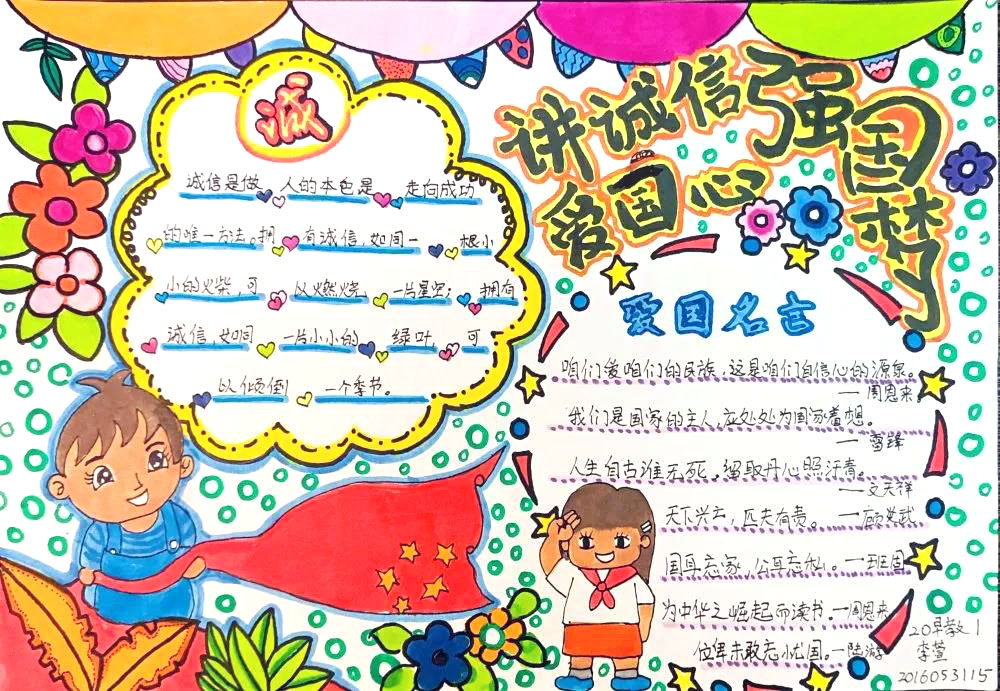 诚
诚信是做人的本色是走向成功
的唯一方法。拥有诚信,如同一根小
小的火柴,可以燃烧,一片星空;拥有
诚信,如同一片小小的绿叶,可
以倾倒一个季节。
讲诚信强国梦
爱国心
爱国名言
咱们爱咱们的民族,这是咱们自信心的源泉。
—周恩来
我们是国家的主人,应处处为国家着想。
—雷锋
人生自古谁无死,留取丹心照汗青。
—文天祥
天下兴亡,匹夫有责。—顾炎武
国耳忘家,公耳忘私。—班固
为中华之崛起而读书。—周恩来
位卑未敢忘忧国。—陆游
20早教1
李萱
2016053115